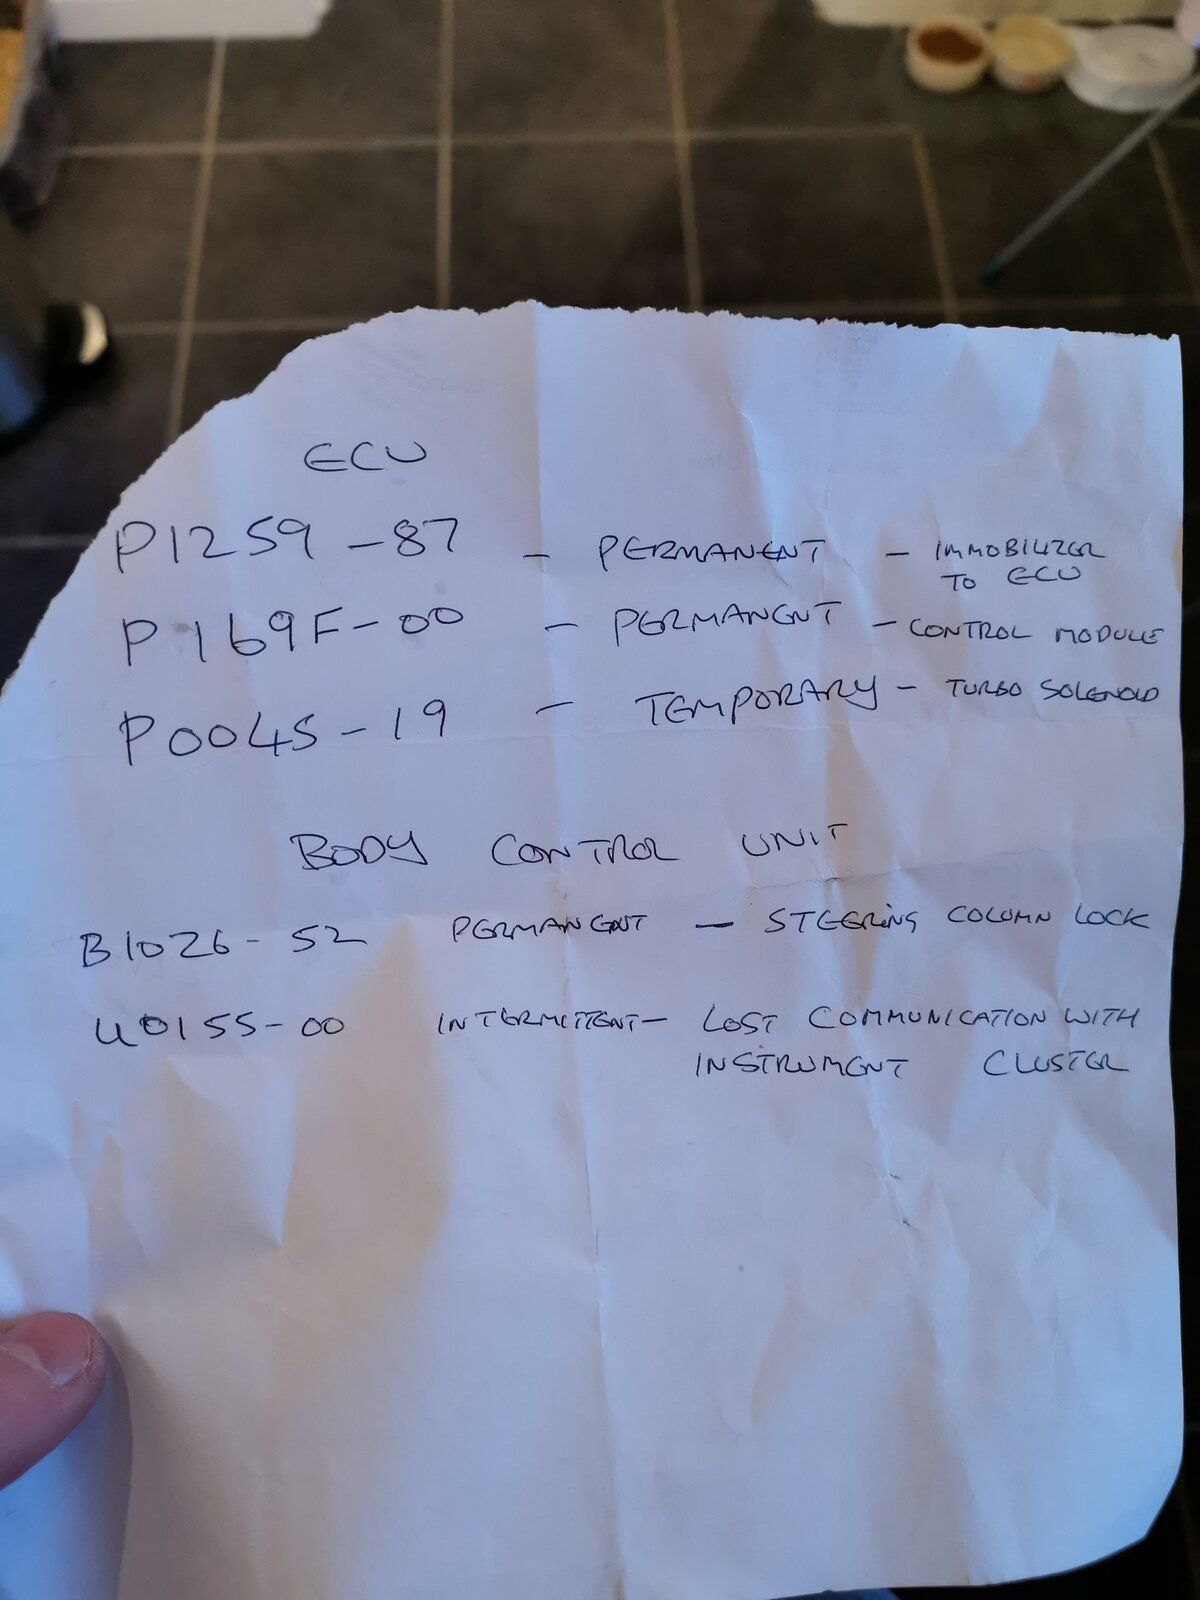 ECU
P1259-87 - PERMANENT - IMMOBILIZER
TO ECU
P169F-00 - PERMANENT - CONTROL MODULE
P0045-19 - TEMPORARY - TURBO SOLENOID
BODY CONTROL UNIT
B1026-52 PERMANENT - STEERING COLUMN LOCK
U0155-00 INTERMITTENT- LOST COMMUNICATION WITH
INSTRUMENT CLUSTER